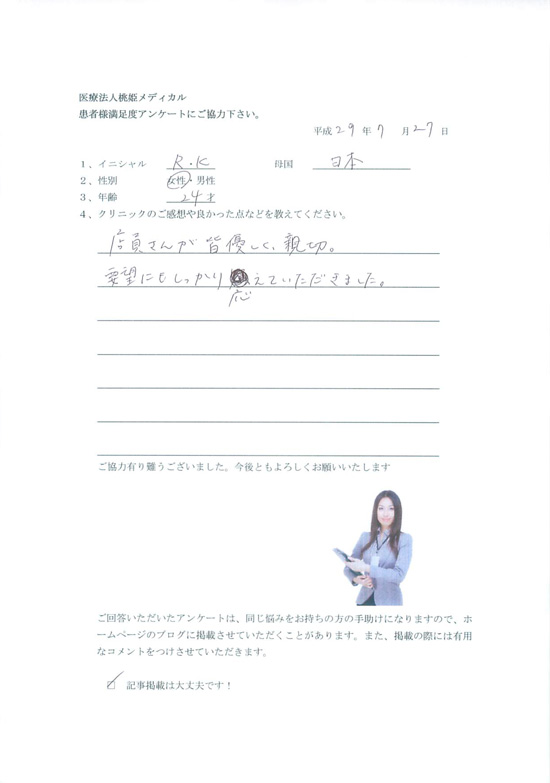 医療法人桃姫メディカル
患者様満足度アンケートにご協力下さい。
平成 29 年 7 月 27 日
1、イニシャル R.K 母国 日本
2、性別 女性・男性
3、年齢 24才
4、クリニックのご感想や良かった点などを教えてください。
店員さんが皆優しく、親切。
要望にもしっかり応えていただきました。
ご協力有り難うございました。今後ともよろしくお願いいたします
ご回答いただいたアンケートは、同じ悩みをお持ちの方の手助けになりますので、ホ
ームページのブログに掲載させていただくことがあります。また、掲載の際には有用
なコメントをつけさせていただきます。
記事掲載は大丈夫です！